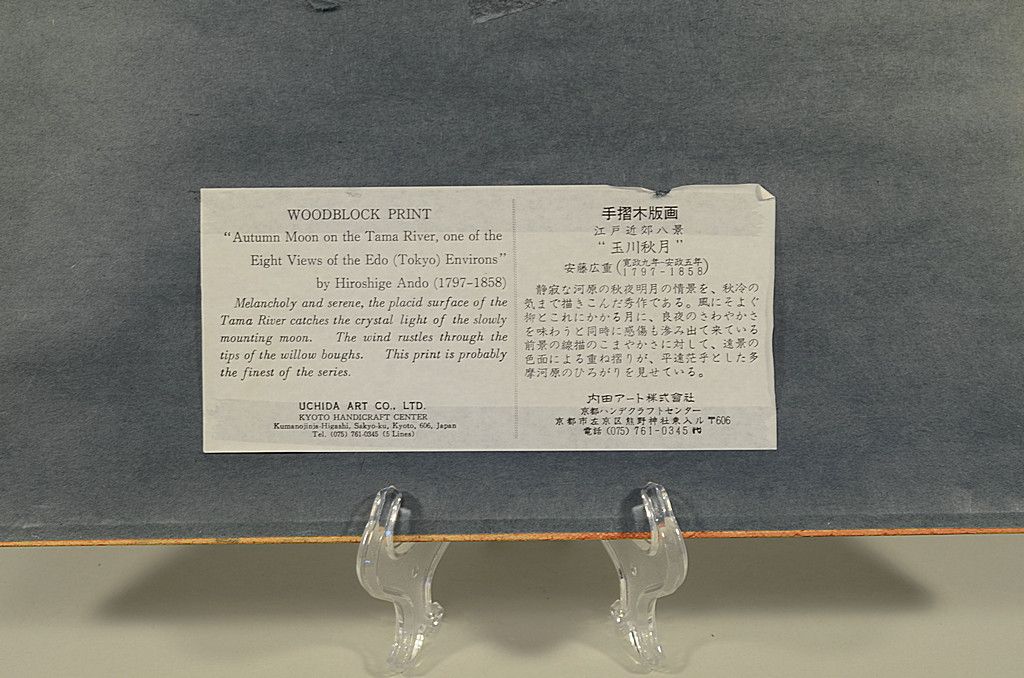 WOODBLOCK PRINT
“Autumn Moon on the Tama River, one of the
Eight Views of the Edo (Tokyo) Environs”
by Hiroshige Ando (1797–1858)
Melancholy and serene, the placid surface of the
Tama River catches the crystal light of the slowly
mounting moon. The wind rustles through the
tips of the willow boughs. This print is probably
the finest of the series.
UCHIDA ART CO., LTD.
KYOTO HANDICRAFT CENTER
Kumanojinja-Higashi, Sakyo-ku, Kyoto, 606, Japan
Tel. (075) 761-0345 (5 Lines)
手摺木版画
江戸近郊八景
“玉川秋月”
安藤広重(寛政九年―安政五年 1797-1858)
静寂な河原の秋夜明月の情景を、秋冷の
気まで描きこんだ秀作である。風にそよぐ
柳とこれにかかる月に、良夜のさわやかさ
を味わうと同時に感傷も滲み出て来ている
前景の線描のこまやかさに対して、遠景の
色面による重ね摺りが、平遠茫乎とした多
摩河原のひろがりを見せている。
内田アート株式会社
京都ハンデクラフトセンター
京都市左京区熊野神社東入ル 〒606
電話 (075) 761-0345 代